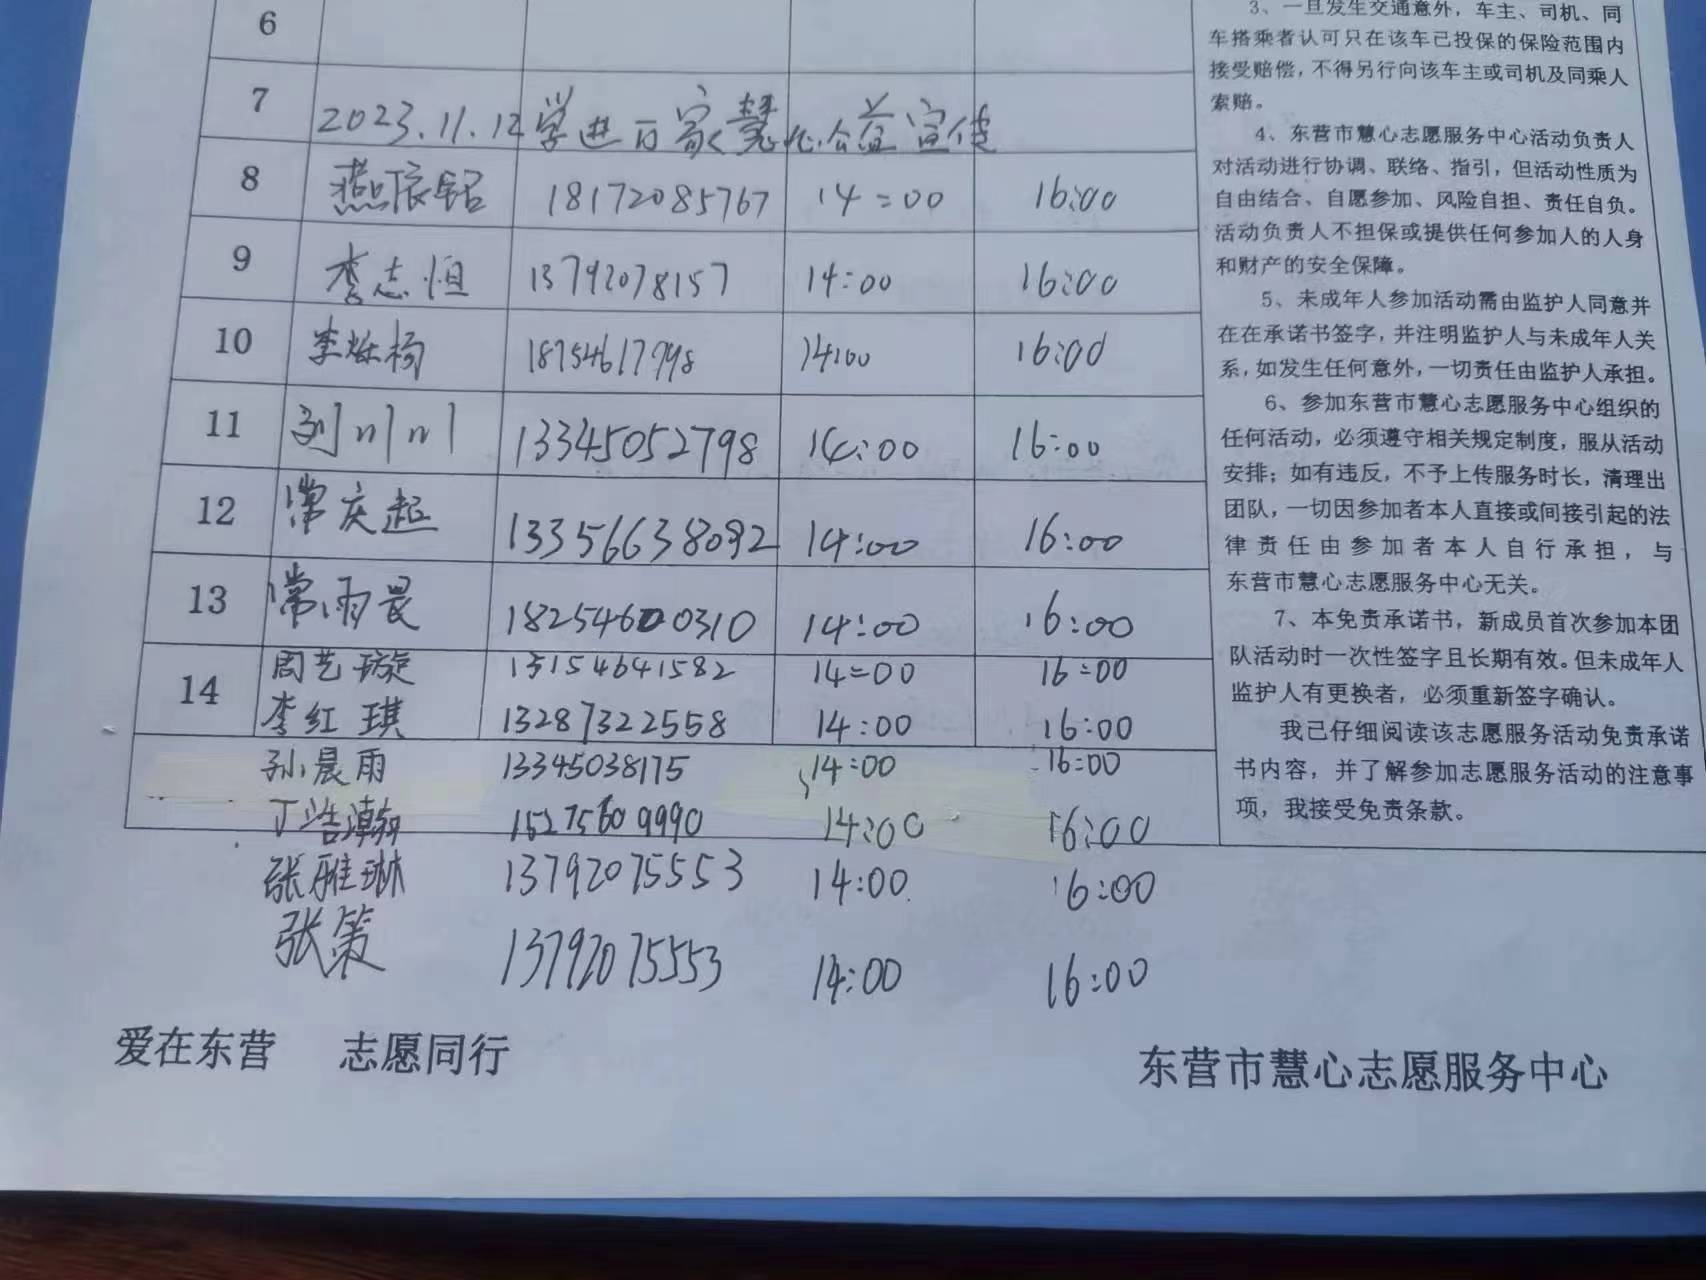 6
7 2023.11.12 学进百家慧心公益宣传
8 燕辰铭 18172085767 14:00 16:00
9 李志恒 13792078157 14:00 16:00
10 李烁杨 18754617998 14:00 16:00
11 刘川川 13345052798 14:00 16:00
12 常庆超 13356638092 14:00 16:00
13 常雨晨 18254600310 14:00 16:00
14 周艺璇 13154641582 14:00 16:00
李红琪 13287322558 14:00 16:00
孙晨雨 13345038175 14:00 16:00
丁浩瀚 15275609990 14:00 16:00
张雅琳 13792075553 14:00 16:00
张策 13792075553 14:00 16:00
3、一旦发生交通意外，车主、司机、同
车搭乘者认可只在该车已投保的保险范围内
接受赔偿，不得另行向该车主或司机及同乘人
索赔。
4、东营市慧心志愿服务中心活动负责人
对活动进行协调、联络、指引，但活动性质为
自由结合、自愿参加、风险自担、责任自负。
活动负责人不担保或提供任何参加人的人身
和财产的安全保障。
5、未成年人参加活动需由监护人同意并
在在承诺书签字，并注明监护人与未成年人关
系，如发生任何意外，一切责任由监护人承担。
6、参加东营市慧心志愿服务中心组织的
任何活动，必须遵守相关规定制度，服从活动
安排；如有违反，不予上传服务时长，清理出
团队，一切因参加者本人直接或间接引起的法
律责任由参加者本人自行承担，与
东营市慧心志愿服务中心无关。
7、本免责承诺书，新成员首次参加本团
队活动时一次性签字且长期有效。但未成年人
监护人有更换者，必须重新签字确认。
我已仔细阅读该志愿服务活动免责承诺
书内容，并了解参加志愿服务活动的注意事
项，我接受免责条款。
爱在东营 志愿同行
东营市慧心志愿服务中心